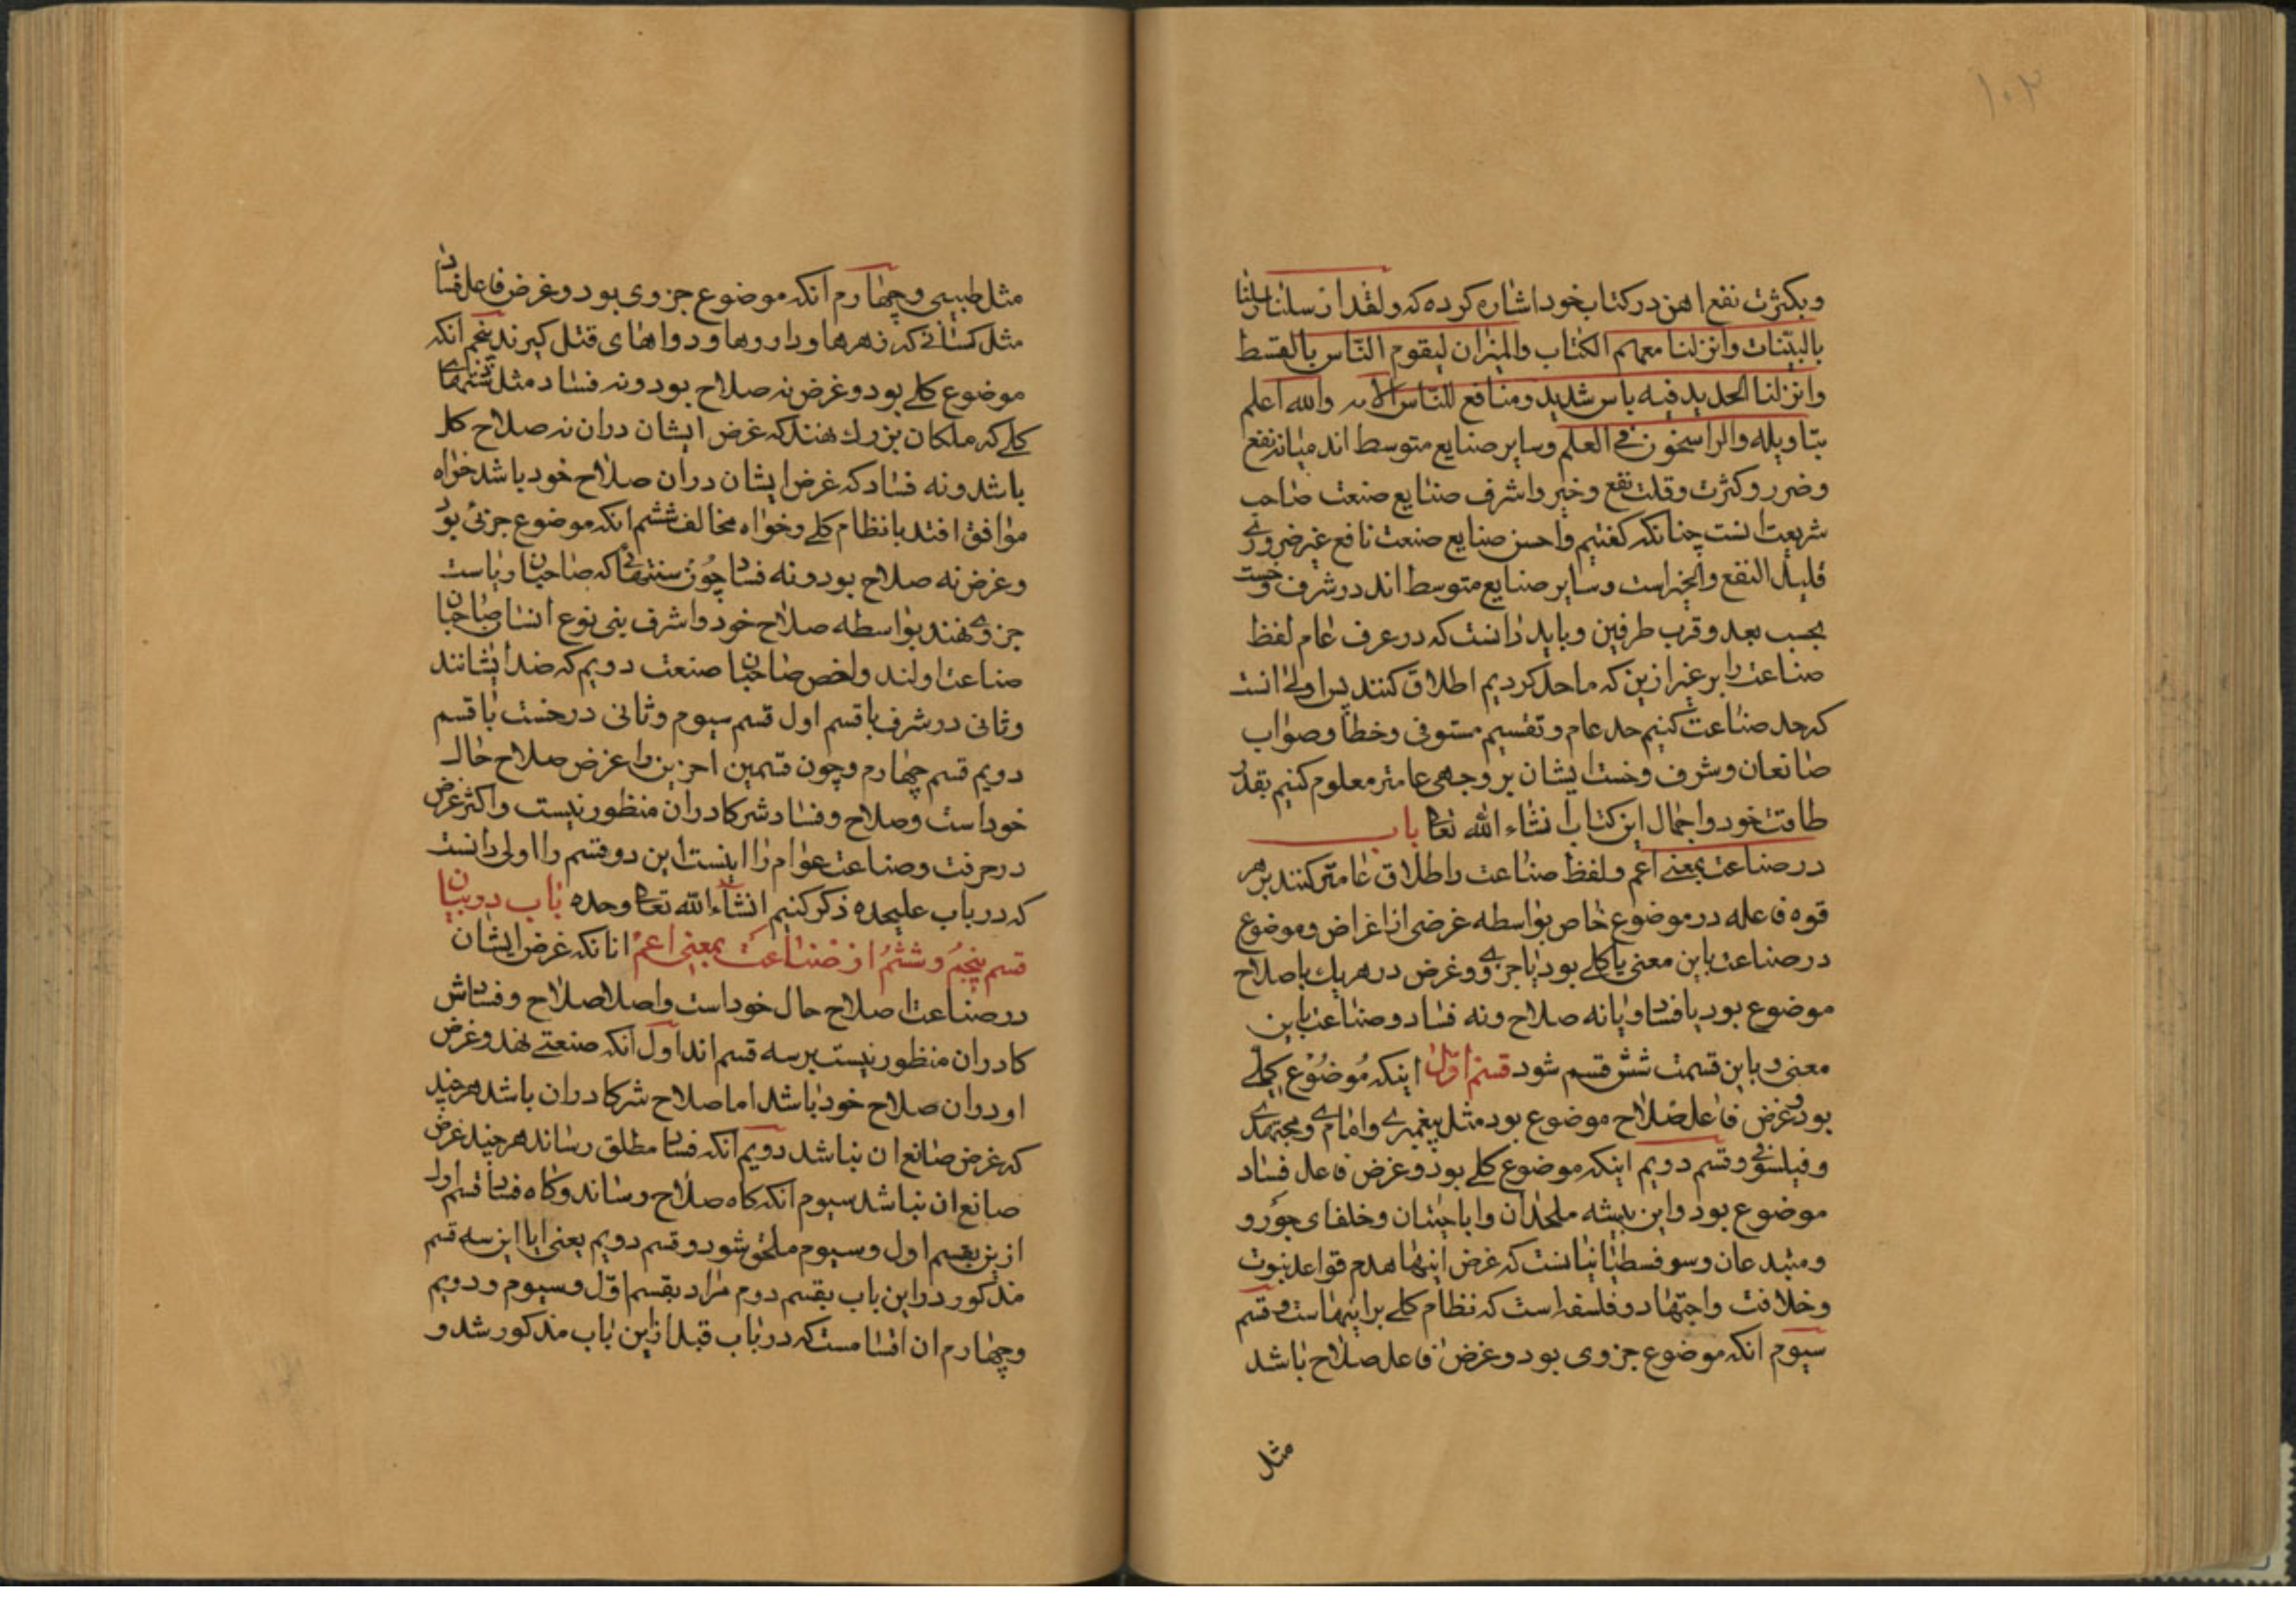 ۱۰۲
وبکثرت نفع اهن در کتاب خود اشاره کرده که ولقد ارسلنا رسلنا
بالبیّنات وانزلنا معهم الکتاب والمیزان لیقوم النّاس بالقسط
وانزلنا الحدید فیه باس شدید ومنافع للنّاس الآیه والله اعلم
بتاویله والراسخون فی العلم وسایر صنایع متوسط اند میانه نفع
وضرر وکثرت وقلت نفع وخیر واشرف صنایع صنعت صاحب
شریعت است چنانکه کفتیم واحسن صنایع صنعت نافع غیر ضروری
قلیل النفع والخیر است وسایر صنایع متوسط اند در شرف وخست
بحسب بعد وقرب طرفین وباید دانست که در عرف عام لفظ
صناعت را بر غیر ازین که ما حد کردیم اطلاق کنند پس اولی انست
که حد صناعت کنیم حد عام وتقسیم مستوفی وخطا وصواب
صانعان وشرف وخست ایشان بر وجهی عامتر معلوم کنیم بقدر
طاقت خود واجمال این کتاب انشاء الله تعا باب
در صناعت بمعنی اعم ولفظ صناعت را اطلاق عامتر کنند بر هر
قوه فاعله در موضوع خاص بواسطه غرضی از اغراض وموضوع
در صناعت باین معنی یا کلی بود یا جزوی وغرض در هر یک یا صلاح
موضوع بود یا فساد ویا نه صلاح ونه فساد وصناعت باین
معنی وباین قسمت شش قسم شود قسم اوّل اینکه موضوع کلی
بود وغرض فاعل صلاح موضوع بود مثل پیغمبری وامامی ومجتهدی
وفیلسوفی وقسم دویم اینکه موضوع کلی بود وغرض فاعل فساد
موضوع بود واین پیشه ملحدان واباحتیان وخلفای جور و
ومبتدعان وسوفسطیانیانست که غرض اینها هدم قواعد نبوت
وخلافت واجتهاد وفلسفه است که نظام کلی بر اینهاست وقسم
سیوم انکه موضوع جزوی بود وغرض فاعل صلاح باشد
مثل
مثل طبیبی وچهارم انکه موضوع جزوی بود وغرض فاعل فساد
مثل کسانی که زهرها وداروها ودواهای قتل کیرند پنجم انکه
موضوع کلی بود وغرض نه صلاح بود ونه فساد مثل سنتهای
کلی که ملکان بزرك نهند که غرض ایشان دران نه صلاح کل
باشد ونه فساد که غرض ایشان دران صلاح خود باشد خواه
موافق افتد با نظام کلی وخواه مخالف ششم انکه موضوع جزئی بود
وغرض نه صلاح بود ونه فساد چون سنتهائی که صاحبان ریاست
جزوی نهند بواسطه صلاح خود واشرف بنی نوع انسان صاحبان
صناعت اولند واخص صاحبان صنعت دویم که ضد ایشانند
وثانی در شرف با قسم اول قسم سیوم وثانی در خست با قسم
دویم قسم چهارم وچون قسمین اخرین را غرض صلاح حال
خود است وصلاح وفساد شرکا دران منظور نیست واکثر غرض
در حرفت وصناعت عوام را اینست این دو قسم را اولی دانست
که در باب علیحده ذکر کنیم انشآء الله تعا وحده باب در بیان
قسم پنجم وششم از صناعت بمعنی اعم انانکه غرض ایشان
در صناعت اصلاح حال خود است واصلا صلاح وفساد ش
کا دران منظور نیست بر سه قسم اند اول انکه صنعتی نهد وغرض
او دران صلاح خود باشد اما صلاح شرکا دران باشد هر چند
که غرض صانع ان نباشد دویم انکه فساد مطلق رساند هر چند غرض
صانع ان نباشد سیوم انکه کاه صلاح رساند وکاه فساد قسم اول
ازین بقسم اول وسیوم ملحق شود وقسم دویم یعنی ایا این سه قسم
مذکور در این باب بقسم دوم مراد بقسم اوّل وسیوم ودویم
وچهارم ان اقسامست که در باب قبل ازین باب مذکور شد و